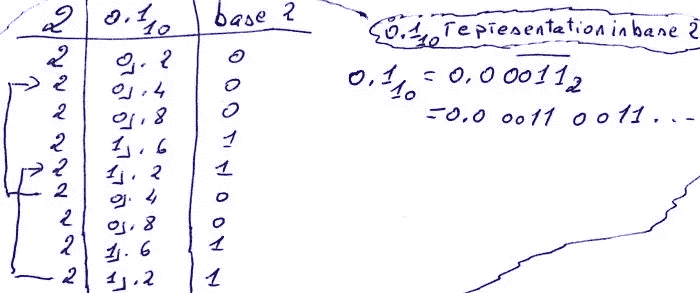 2 0.1₁₀ base 2
2 0,.2 0
2 0,.4 0
2 0,.8 0
2 1,.6 1
2 1,.2 1
2 0,.4 0
2 0,.8 0
2 1,.6 1
2 1,.2 1
0.1₁₀ representation in base 2
0.1₁₀ = 0.0 0̅0̅1̅1̅₂
=0.0 0011 0011...